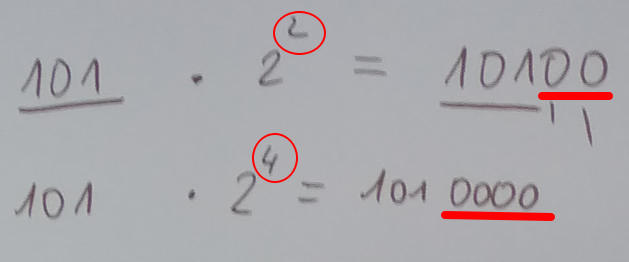 101 · 2² = 10100
101 · 2⁴ = 101 0000